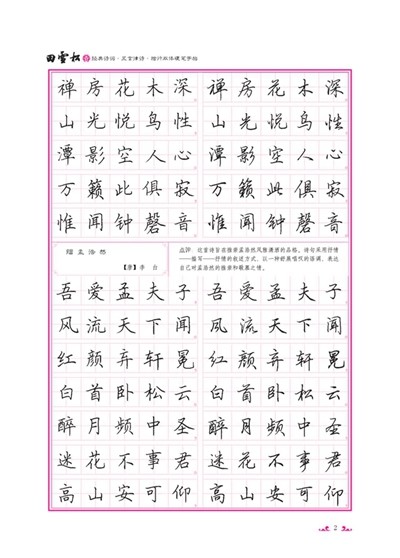 田雪松 书 经典诗词·五言律诗·楷行双体硬笔字帖
禅房花木深 禅房花木深
山光悦鸟性 山光悦鸟性
潭影空人心 潭影空人心
万籁此俱寂 万籁此俱寂
惟闻钟磬音 惟闻钟磬音
赠孟浩然
【唐】李白
点评:这首诗旨在推崇孟浩然风雅潇洒的品格。诗句采用抒情
——描写——抒情的叙述方式,以一种舒展唱叹的语调,表达
自己对孟浩然的推崇和敬慕之情。
吾爱孟夫子 吾爱孟夫子
风流天下闻 风流天下闻
红颜弃轩冕 红颜弃轩冕
白首卧松云 白首卧松云
醉月频中圣 醉月频中圣
迷花不事君 迷花不事君
高山安可仰 高山安可仰
2